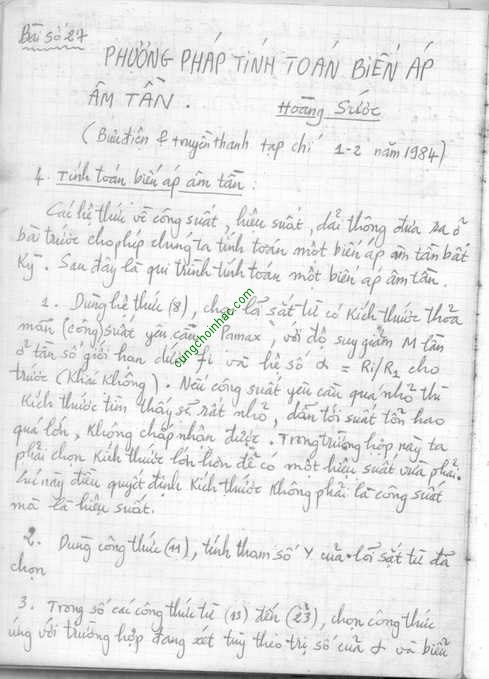 Bài số 27
PHƯƠNG PHÁP TÍNH TOÁN BIẾN ÁP
ÂM TẦN. Hoàng Sước
(Bưu điện & truyền thanh tạp chí 1-2 năm 1984)
4. Tính toán biến áp âm tần:
Các hệ thức về công suất, hiệu suất, dải thông đưa ra ở
bài trước cho phép chúng ta tính toán một biến áp âm tần bất
Kỳ. Sau đây là qui trình tính toán một biến áp âm tần.
1. Dùng hệ thức (8), chọn lõi sắt từ có Kích thước thỏa
mãn (công) suất yêu cầu Pamax, với độ suy giảm M tần
ở tần số giới hạn dưới fi và hệ số α = Ri/R1 cho
trước (Khác Không). Nếu công suất yêu cầu quá nhỏ thì
Kích thước tìm thấy sẽ rất nhỏ, dẫn tới suất tổn hao
quá lớn, Không chấp nhận được. Trong trường hợp này ta
phải chọn Kích thước lớn hơn để có một hiệu suất vừa phải.
Lúc này điều quyết định Kích thước Không phải là công suất
mà là hiệu suất.
2. Dùng công thức (11), tính tham số Y của lõi sắt từ đã
chọn
3. Trong số các công thức từ (13) đến (23), chọn công thức
ứng với trường hợp đang xét tùy theo trị số của α và biến
cungchoinhac.com